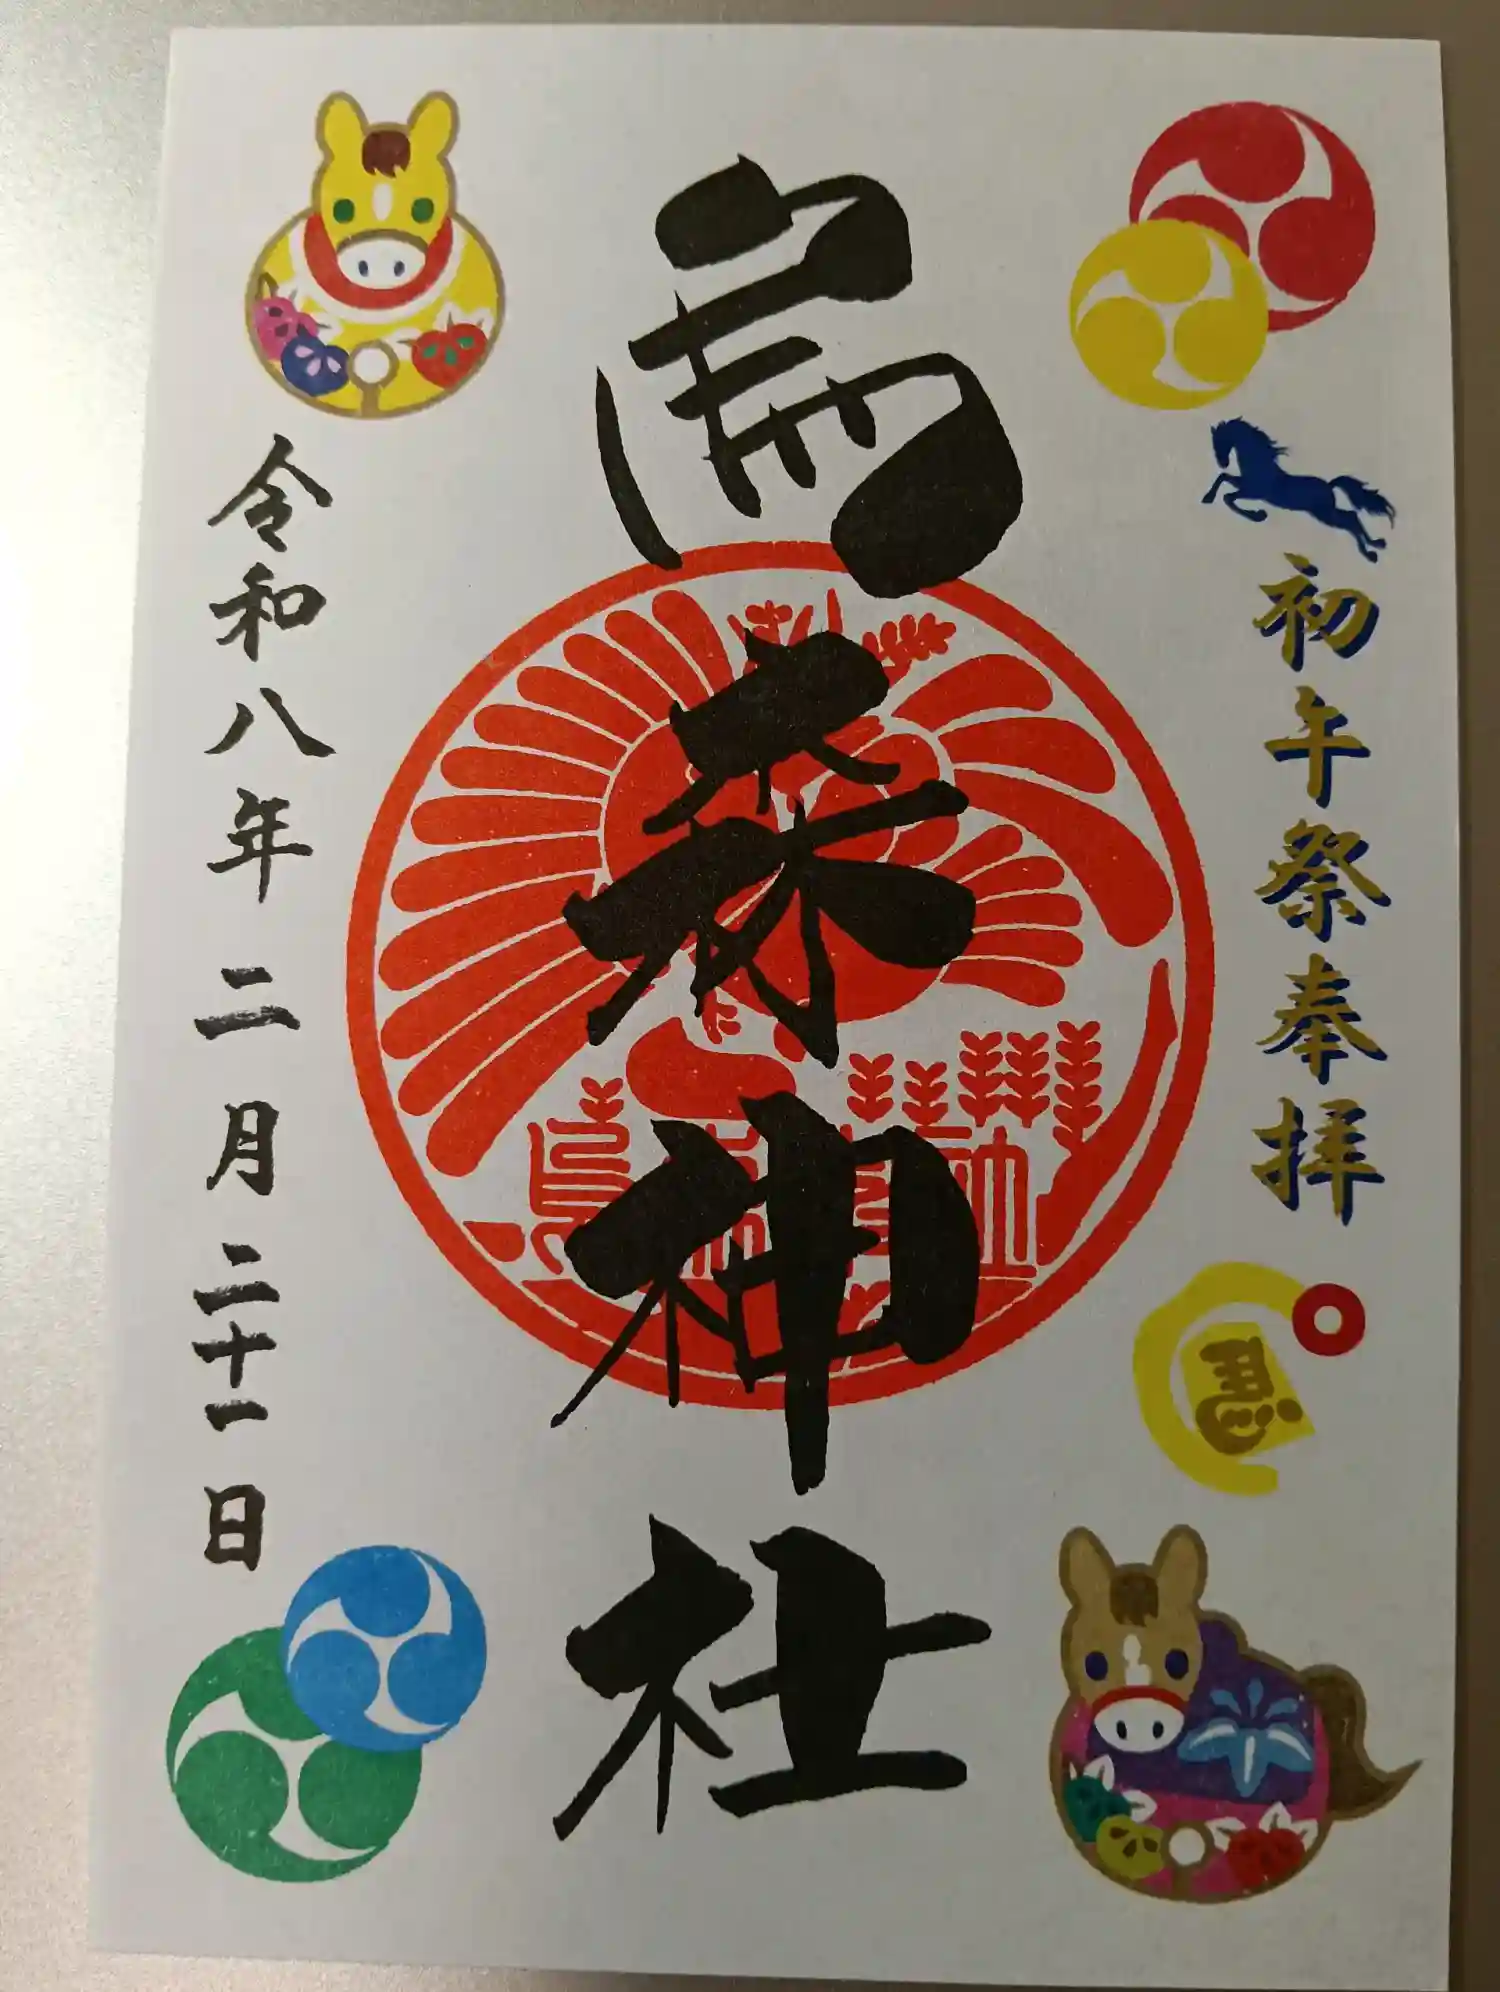 初午祭奉拝
馬
烏森神社
烏森神社
令和八年 二月 二十一日